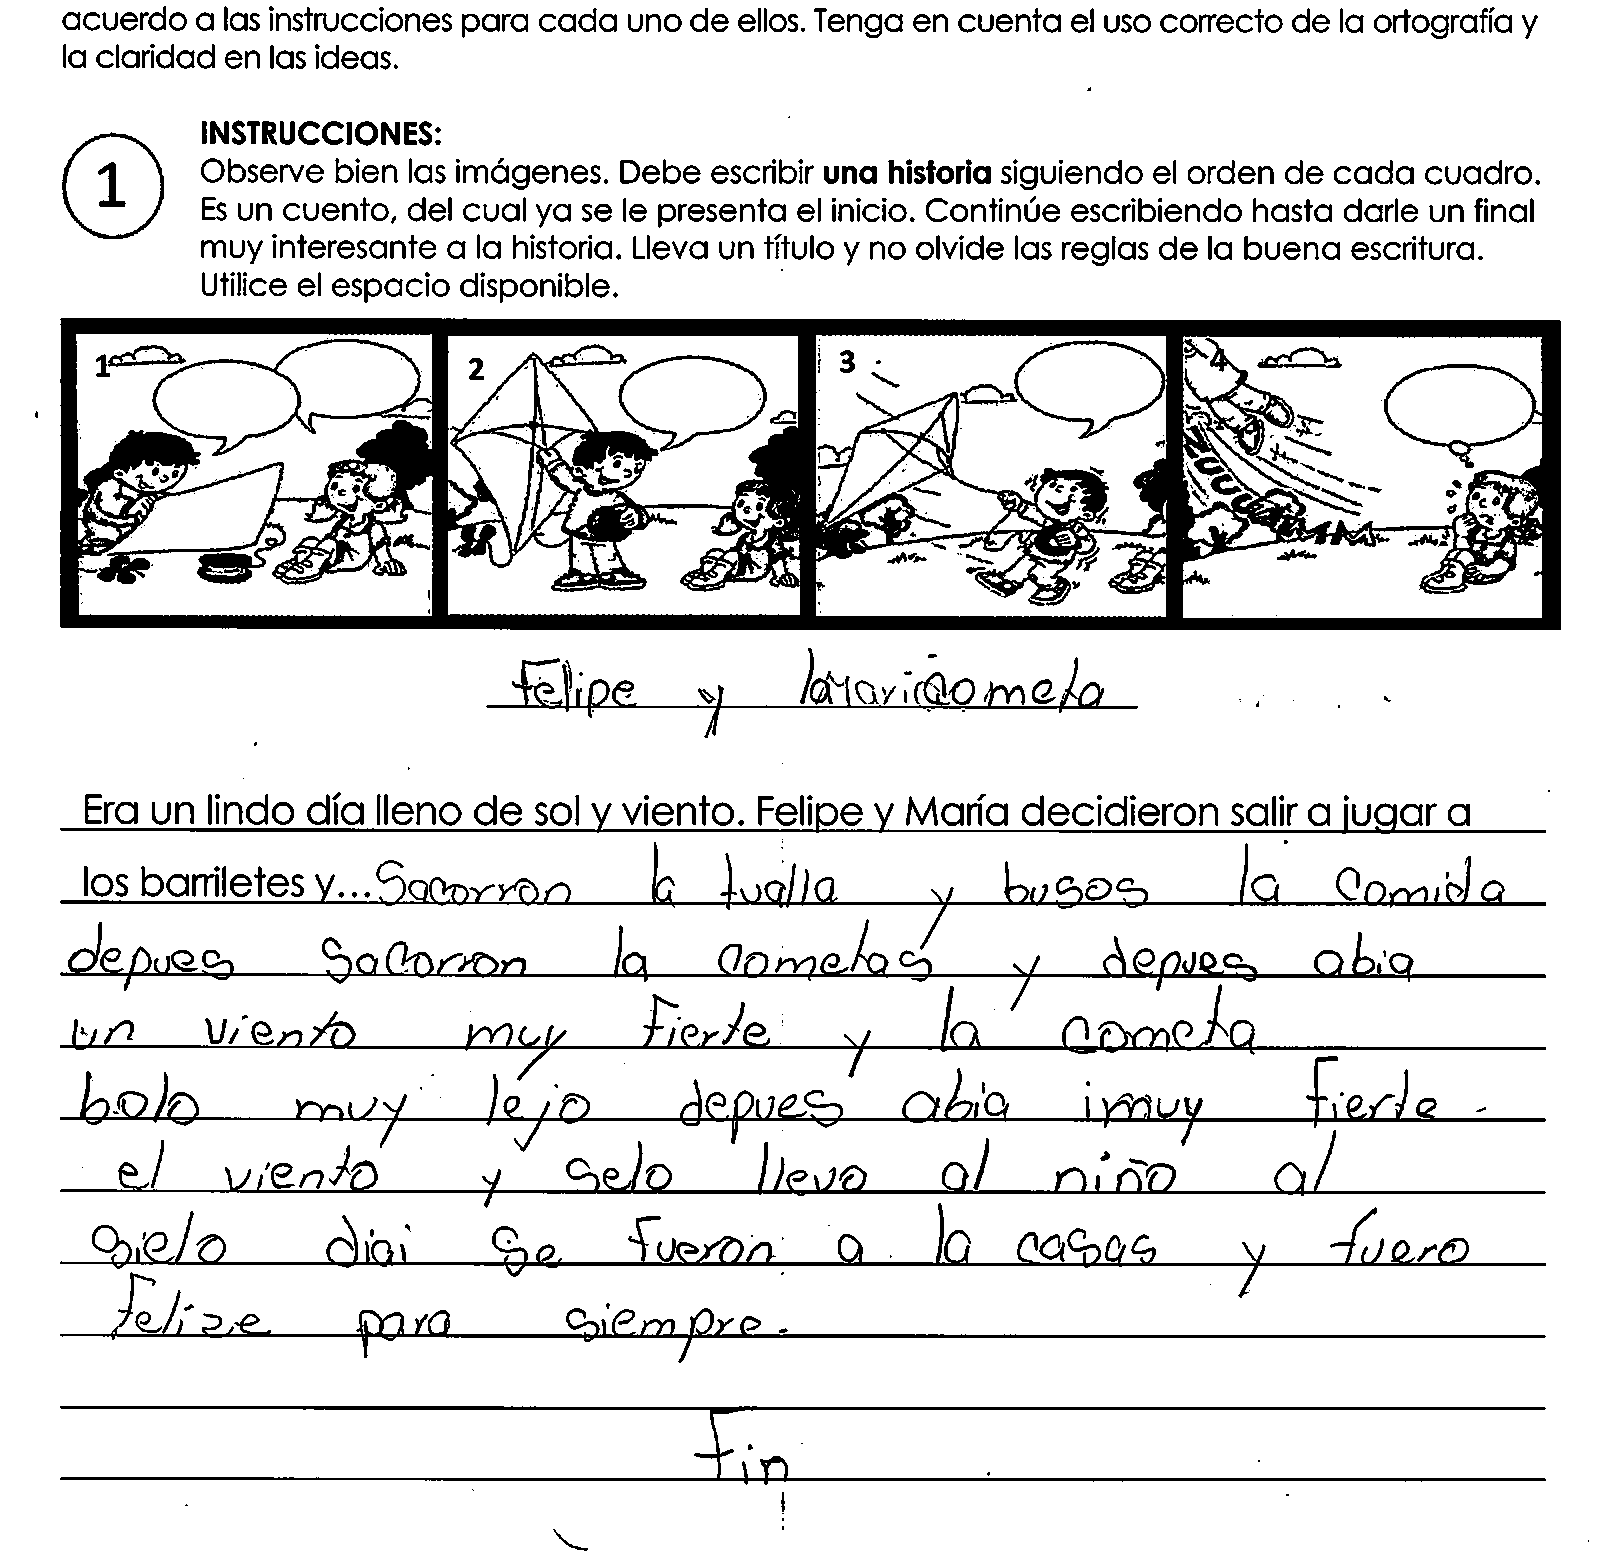 acuerdo a las instrucciones para cada uno de ellos. Tenga en cuenta el uso correcto de la ortografía y
la claridad en las ideas.
1
INSTRUCCIONES:
Observe bien las imágenes. Debe escribir una historia siguiendo el orden de cada cuadro.
Es un cuento, del cual ya se le presenta el inicio. Continúe escribiendo hasta darle un final
muy interesante a la historia. Lleva un título y no olvide las reglas de la buena escritura.
Utilice el espacio disponible.
1 2 3 4
Felipe y cometa
Era un lindo día lleno de sol y viento. Felipe y María decidieron salir a jugar a
los barriletes y... Sacorron la tualla y busos la comida
depues sacorron la cometas y depues abia
un viento muy fierte y la cometa
bolo muy lejo depues abia muy fierte.
el viento y selo llevo al niño al
sielo diai se fueron a la casas y fuero
Felize para siempre.
Fin